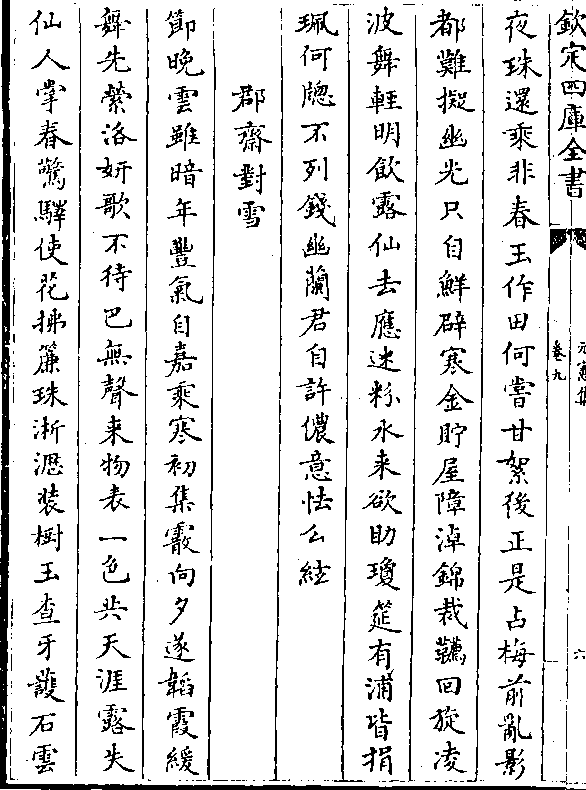 欽定四庫全書
元憲集
卷九
六
夜珠還乘非春玉作田何嘗甘絮後正是占梅前亂影
都難擬幽光只自鮮辟寒金貯屋障淖錦裁韉回旋凌
波舞輕明飲露仙去應迷粉水来欲助瓊筵有浦皆捐
珮何牕不列錢幽蘭君自許儂意怯么絃
郡齋對雪
節晚雲雖暗年豐氣自嘉乘寒初集霰向夕遂韜霞緩
舞先縈洛妍歌不待巴無聲来物表一色共天涯露失
仙人掌春驚驛使花拂簾珠淅瀝装樹玉查牙䕶石雲